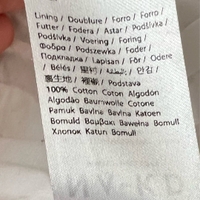 Lining / Doublure / Forro / Forro /
Futter / Fodera / Astar / Podšívka /
Podšívka / Voering / Foring /
Фодра / Podszewka / Foder /
Подкладка / Lapisan / Fôr / Odere
/ Bélés / 里衬 / بطانة / 안감 /
裏生地 / 裡襯 / Podstava
100% Cotton Coton Algodón
Algodão Baumwolle Cotone
Pamuk Bavlna Bavlna Katoen
Bomuld Βαμβάκι Bawełna Bomull
Хлопок Katun Bomull